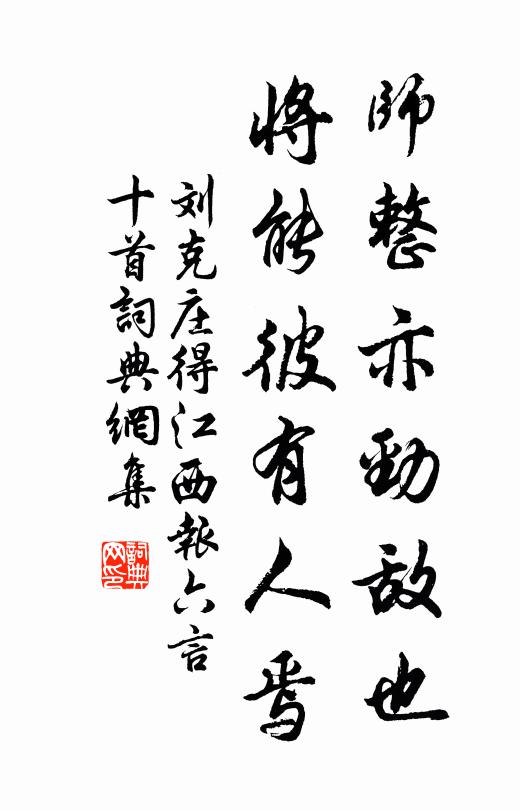 師整亦勁敌也
將能彼有人焉
刘克庄得江西報六言
十首詞典網集
詞典
网印